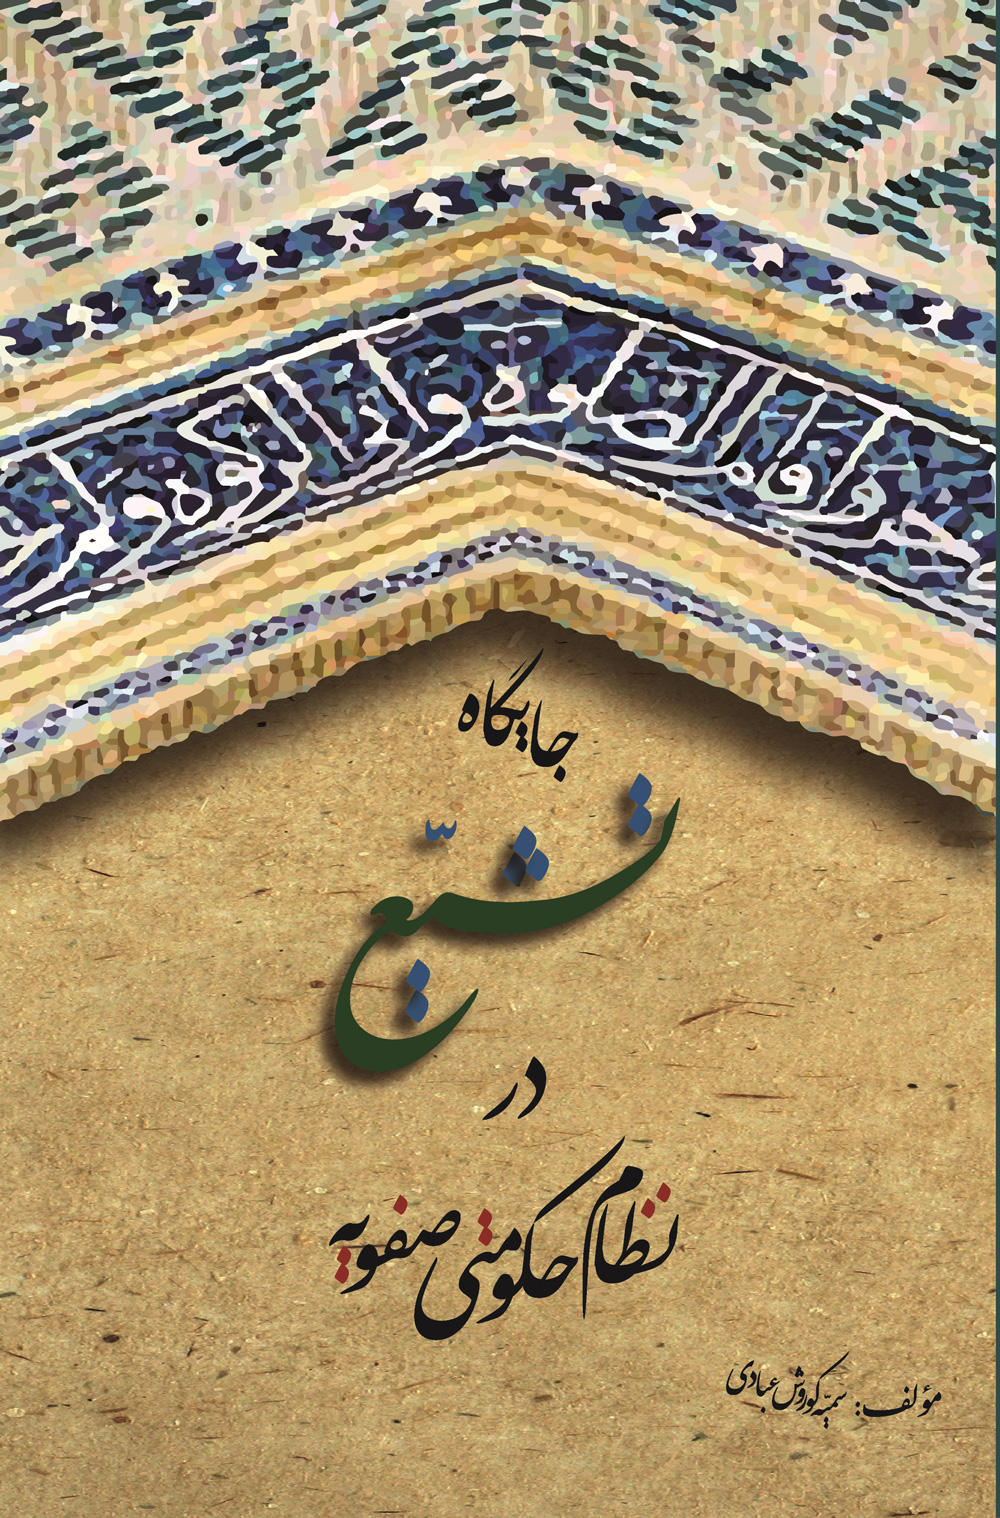 جایگاه
تشیّع
در
نظام حکومتی صفویه
مؤلف: سمیّه کوروش عبادی